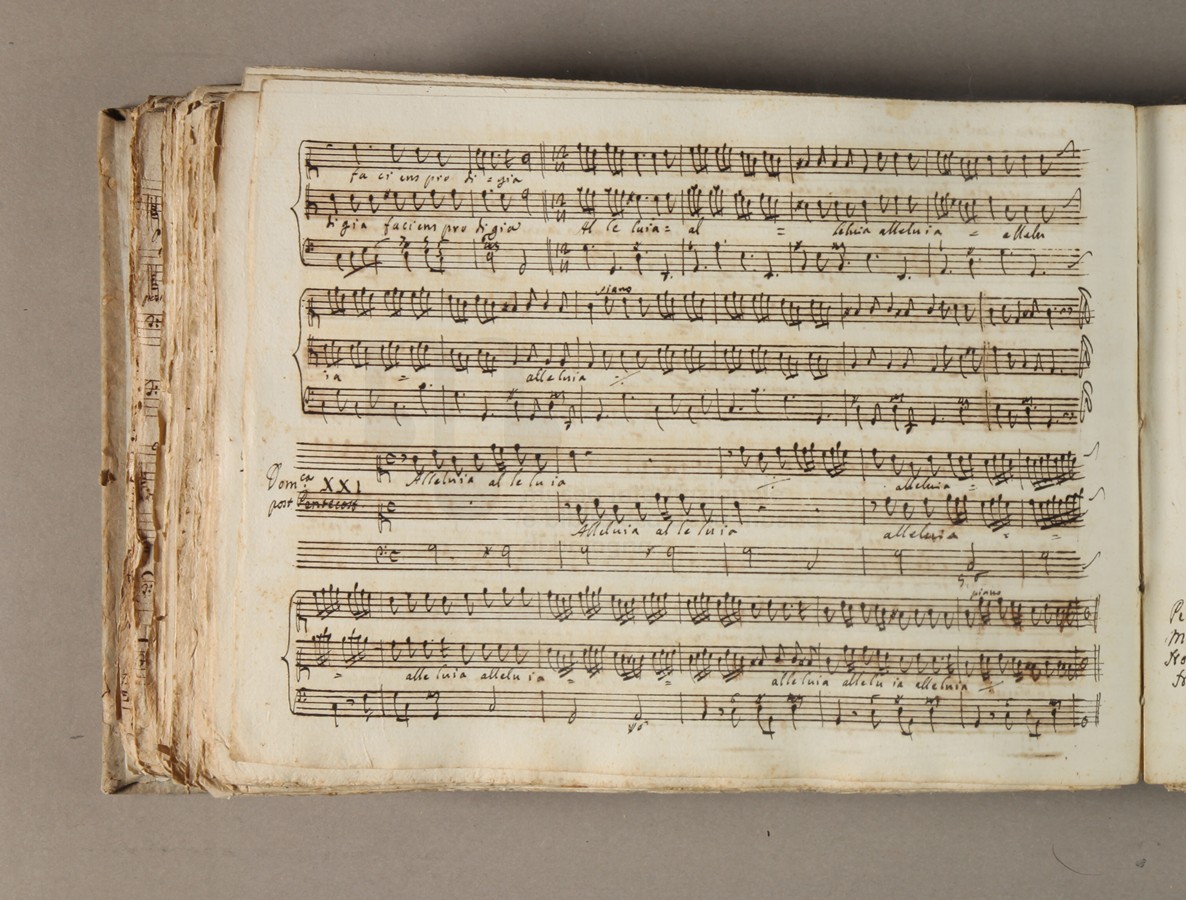 fa ci ens pro di = gia
digia faciens pro digia Al le luia = al = leluia alleluia = allelu
piano
ia = alleluia
Domca XXI
post Pentecost
Alleluia al le luia alleluia =
Alleluia al le luia alleluia = =
piano
= alle luia allelu ia = = alleluia allelu ia alleluia